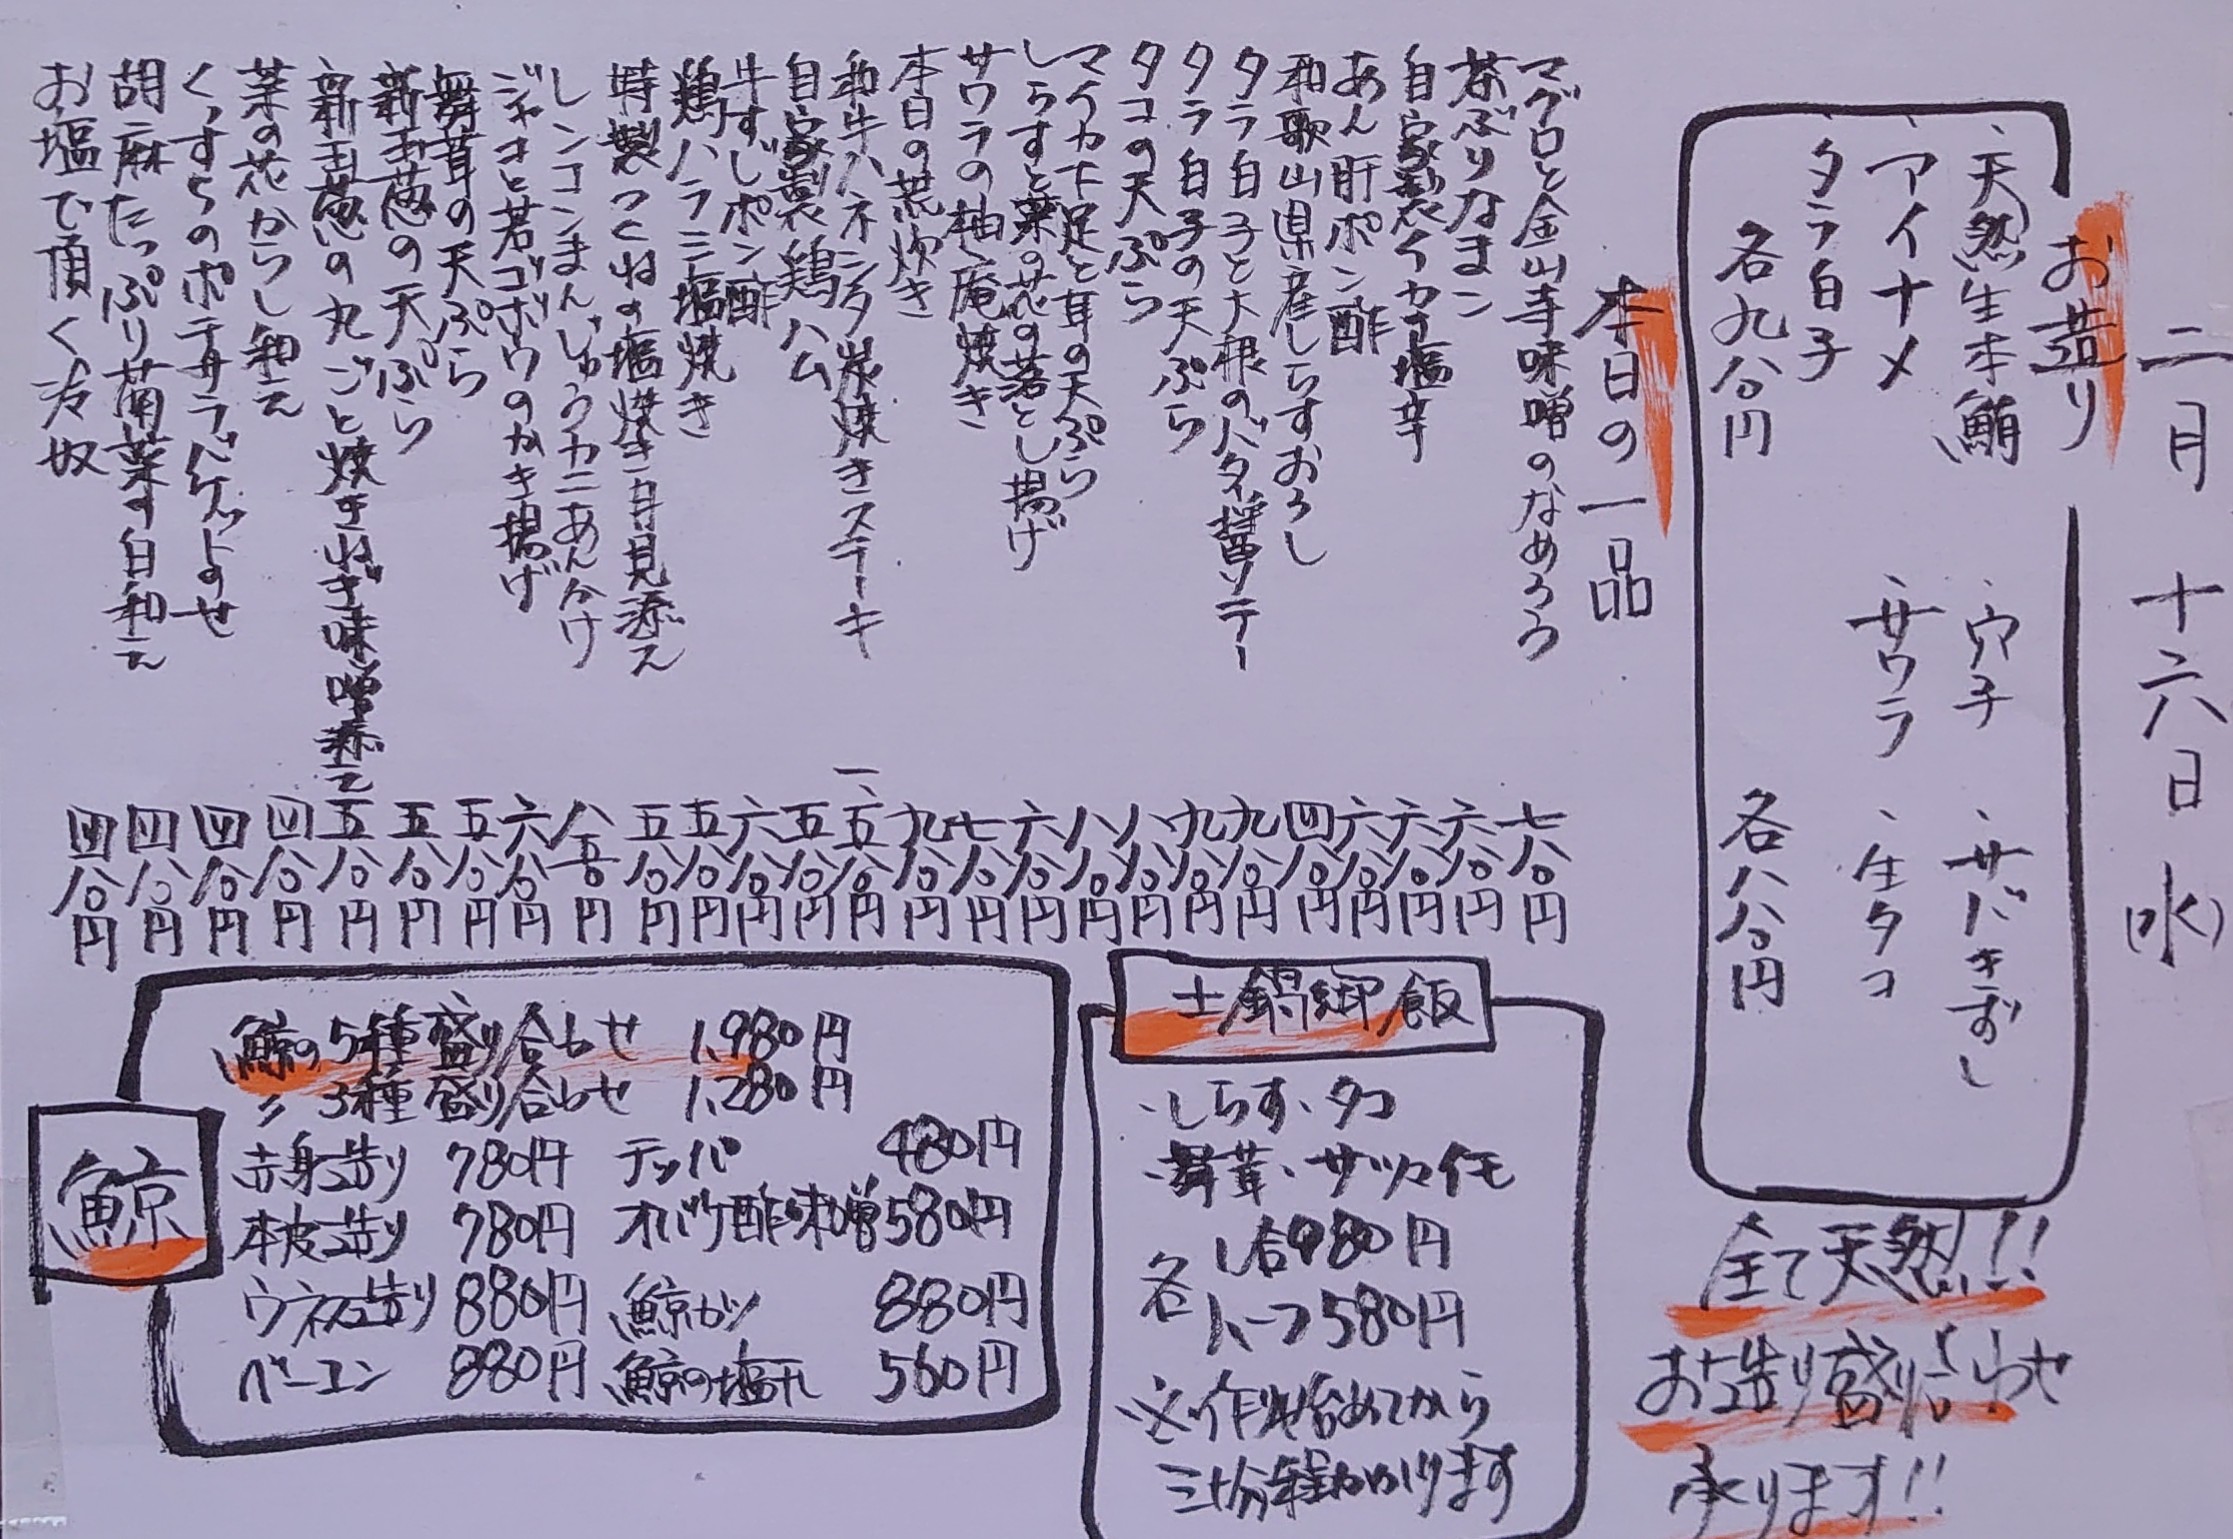 二月十六日(水)
お造り
、天然生本鮪
、アイナメ
、タラ白子
各九八〇円
、穴子
、サワラ
、サバきずし
、生タコ
各八八〇円
全て天然!!
お造り盛り合わせ
承ります!!
本日の一品
マグロと金山寺味噌のなめろう 七八〇円
茶ぶりなまこ 六八〇円
自家製イカの塩辛 六八〇円
あん肝ポン酢 六八〇円
和歌山県産しらすおろし 四八〇円
タラ白子と大根のバター醤油ソテー 九八〇円
タラ白子の天ぷら 九八〇円
タコの天ぷら 八八〇円
マイカ下足と耳の天ぷら 八八〇円
しらすと菜の花の落とし揚げ 六八〇円
サワラの柚庵焼き 七八〇円
本日の荒炊き 九八〇円
和牛ハネシタ炭焼きステーキ 一、五八〇円
自家製鶏ハム 五八〇円
牛すじポン酢 六八〇円
鶏ハラミ塩焼き 五八〇円
特製つくねの塩焼き月見添え 五八〇円
レンコンまんじゅうカニあんかけ 八五〇円
ジャコと若ゴボウのかき揚げ 六八〇円
舞茸の天ぷら 五八〇円
新玉葱の天ぷら 五八〇円
新玉葱の丸ごと焼きねぎ味噌添え 五八〇円
菜の花からし和え 四八〇円
くっすらのポテサラバゲットのせ 四八〇円
胡麻たっぷり菊菜の白和え 四八〇円
お塩で頂く冷奴 四八〇円
土鍋御飯
、しらす、タコ
、舞茸、サツマイモ
各 1合980円
ハーフ580円
※作り始めてから
三十分程かかります
鯨
鯨の5種盛り合わせ 1,980円
〃 3種盛り合わせ 1,280円
赤身造り 780円 テッパ 480円
本皮造り 780円 オバケ酢味噌 580円
ウネス造り 880円 鯨カツ 880円
ベーコン 880円 鯨の塩タレ 560円